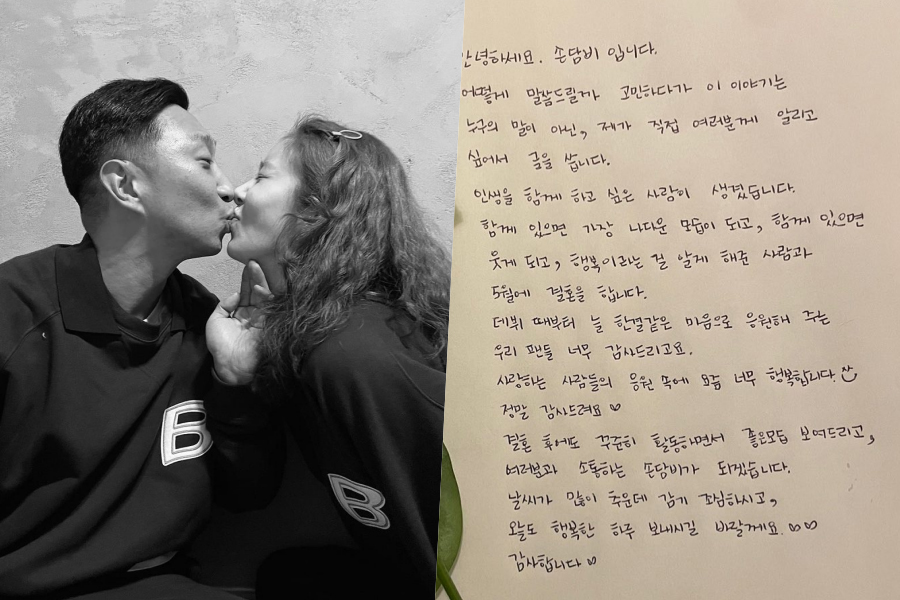 B
B
안녕하세요. 손담비 입니다.
어떻게 말씀드릴까 고민하다가 이 이야기는
누구의 말이 아닌, 제가 직접 여러분께 알리고
싶어서 글을 씁니다.
인생을 함께 하고 싶은 사람이 생겼습니다.
함께 있으면 가장 나다운 모습이 되고, 함께 있으면
웃게 되고, 행복이라는 걸 알게 해준 사람과
5월에 결혼을 합니다.
데뷔 때부터 늘 한결같은 마음으로 응원해 주는
우리 팬들 너무 감사드리고요.
사랑하는 사람들의 응원 속에 요즘 너무 행복합니다.^^
정말 감사드려요 ♡
결혼 후에도 꾸준히 활동하면서 좋은모습 보여드리고,
여러분과 소통하는 손담비가 되겠습니다.
날씨가 많이 추운데 감기 조심하시고,
오늘도 행복한 하루 보내시길 바랄게요. ♡♡
감사합니다 ♡